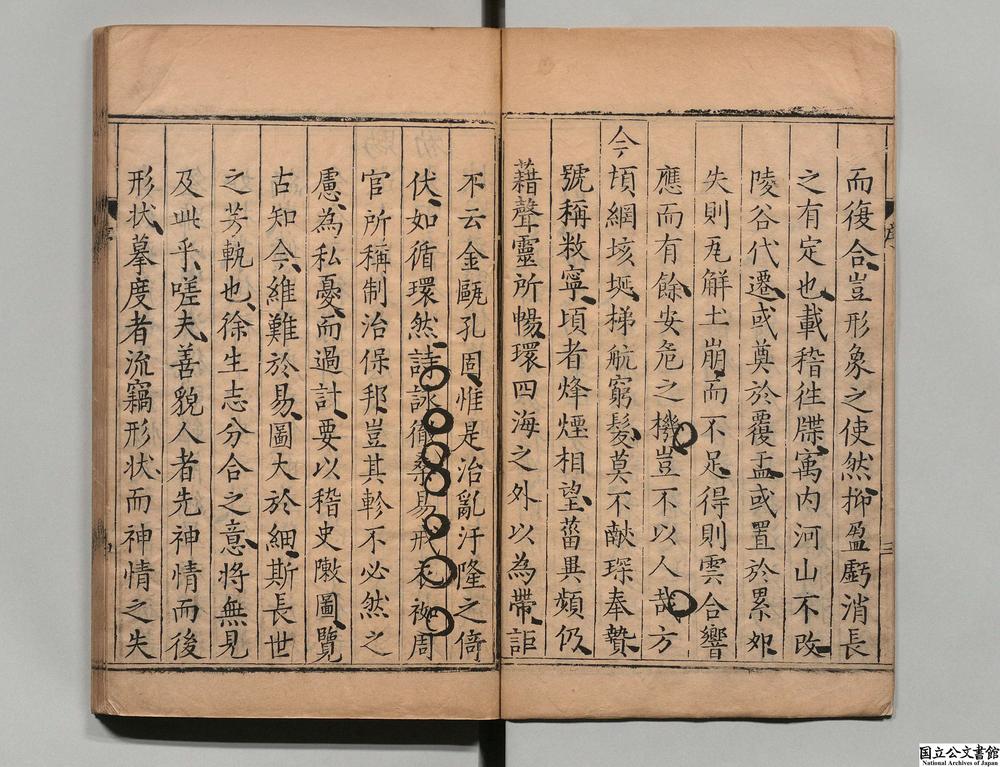 而復合豈形象之使然抑盈虧消長
之有定也載稽徃牒㝢內河山不改
陵谷代遷或奠於覆盂或置於累夘
失則瓦解土崩而不足得則雲合響
應而有餘安危之機豈不以人哉方
今頃綱垓埏梯航窮髮莫不獻琛奉贄
號稱敉寧頃者烽煙相望葘異頻仍
藉聲靈所暢環四海之外以為帶詎
不云金甌孔固惟是治亂汙隆之倚
伏如循環然詩詠徹桑易戒衣袽周
官所稱制治保邦豈其軫不必然之
慮為私憂而過計要以稽史陳圖覽
古知今維難於易圖大於細斯長世
之芳軌也徐生志分合之意將無見
及此乎嗟夫善貌人者先神情而後
形状摹度者流竊形状而神情之失
序
三
国立公文書館
National Archives of Japan